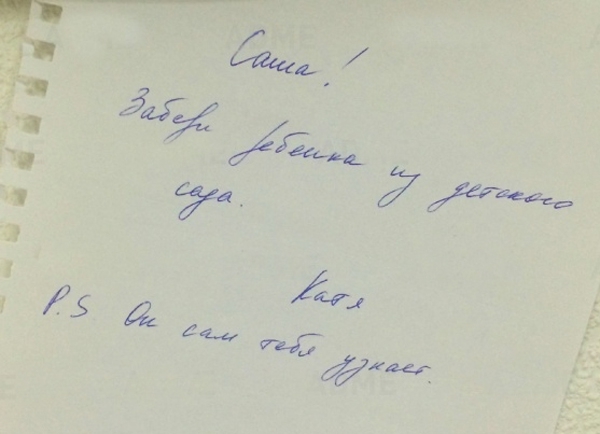 Саша!
Забери ребенка из детского
сада.
Катя
P.S Он сам тебя узнает.